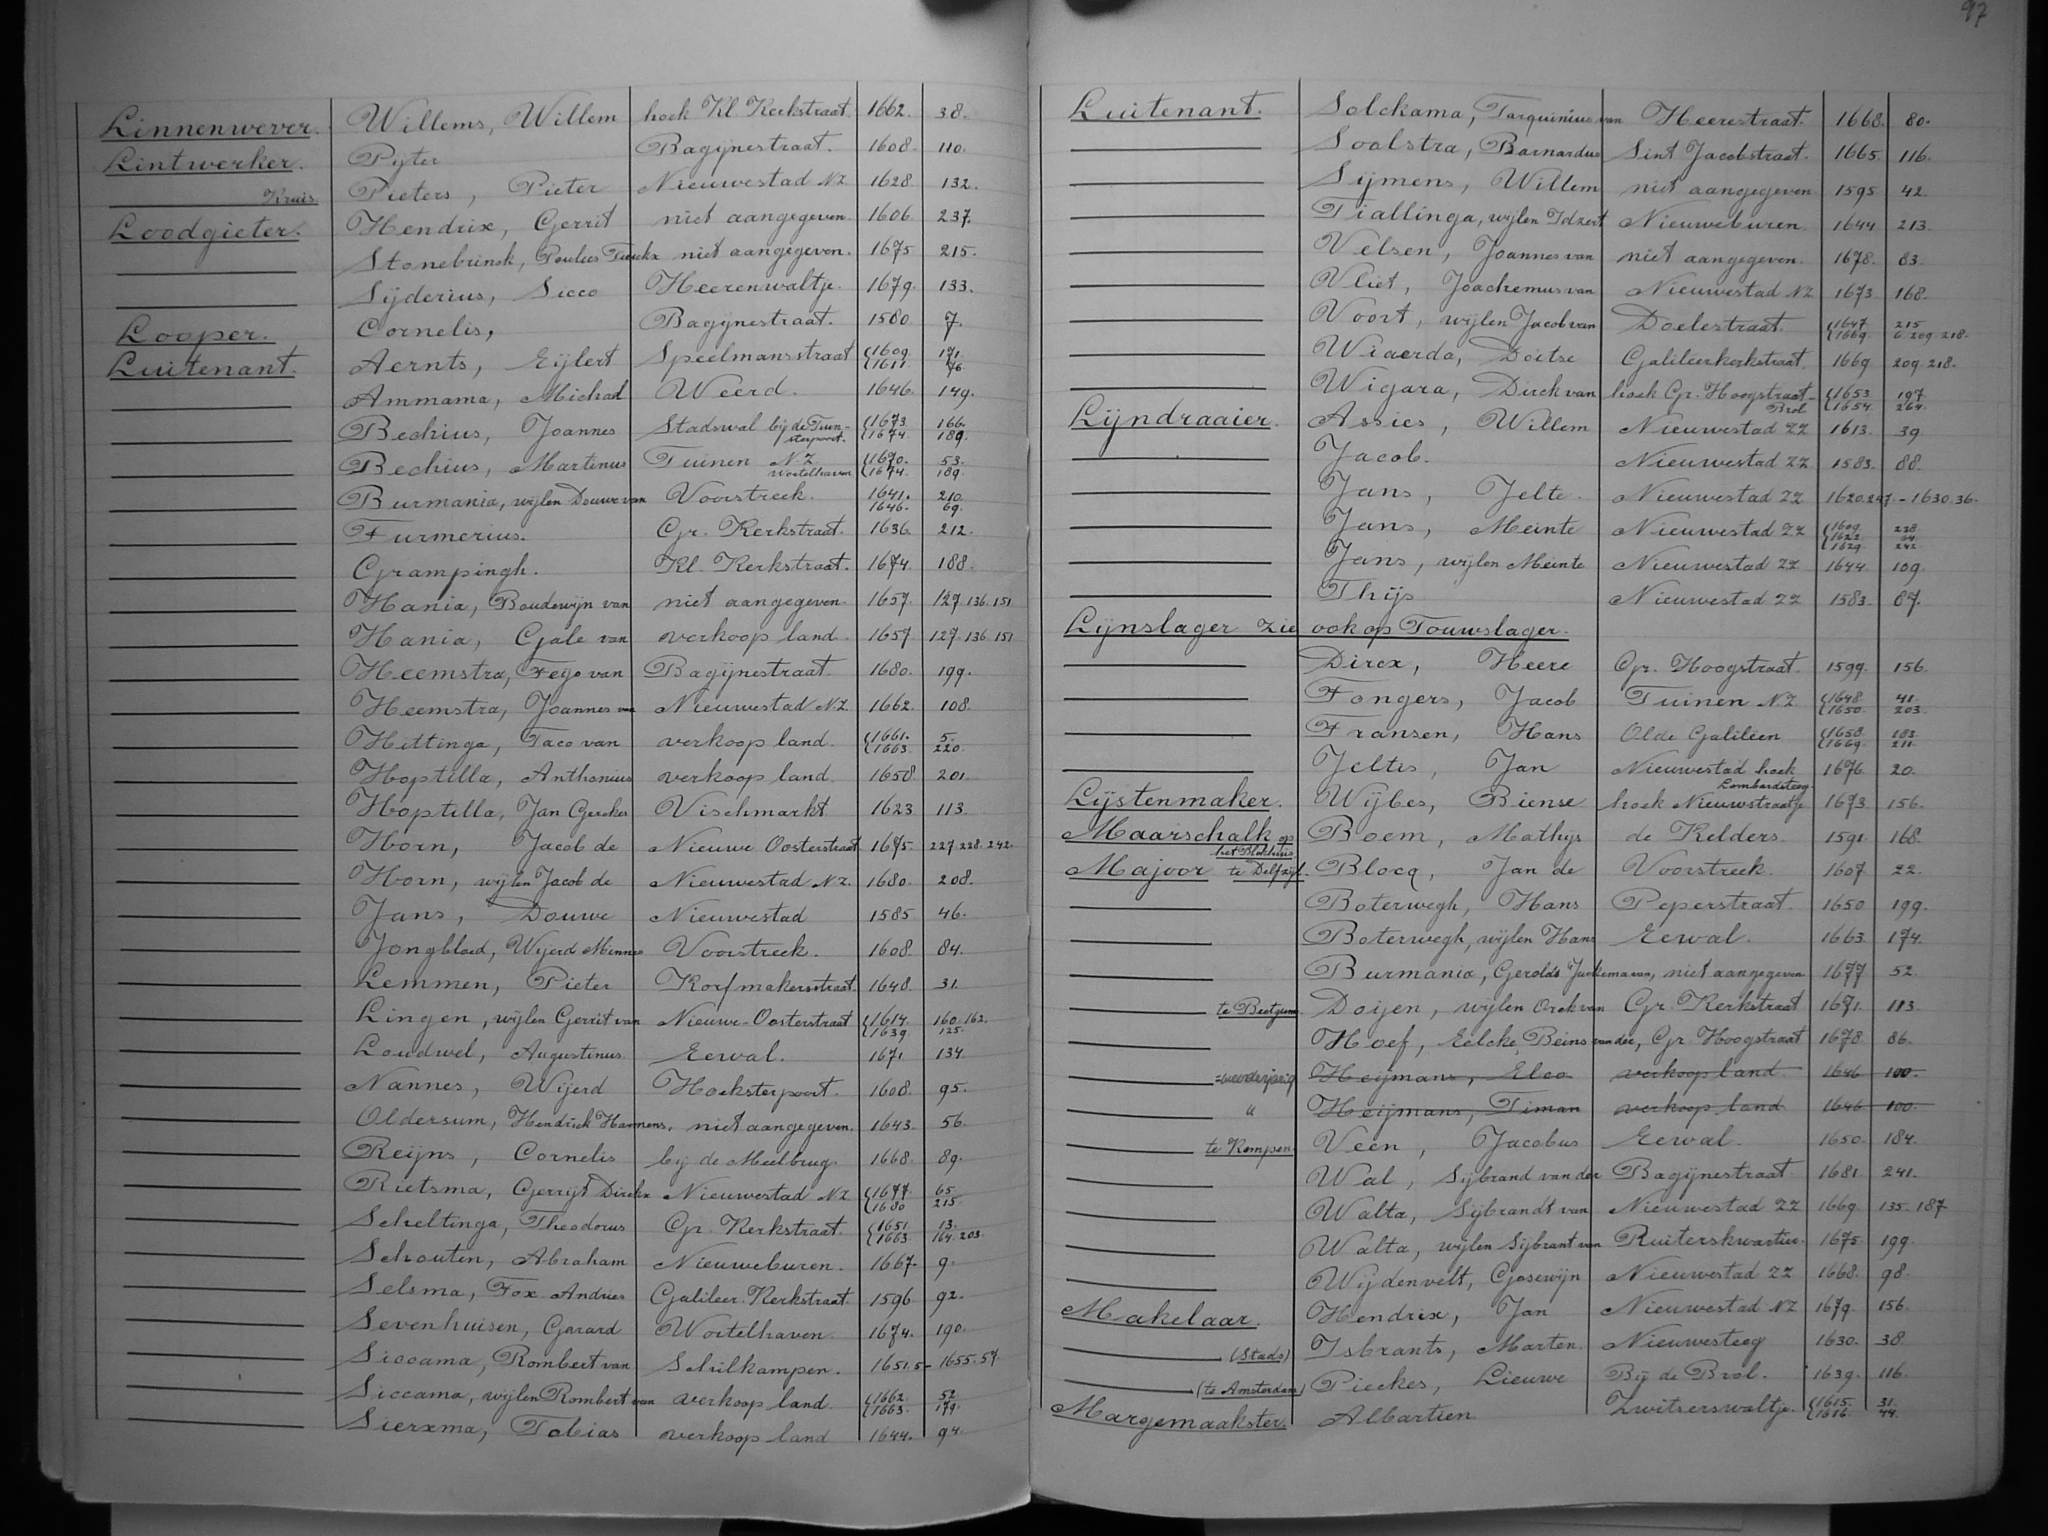 97
Linnenwever. Willems, Willem hoek Kl. Kerkstraat 1662. 38.
Lintwerker. Pyter Bagijnestraat. 1608. 110.
Kruis Pieters, Pieter Nieuwestad NZ 1628. 132.
Loodgieter. Hendrix, Gerrit niet aangegeven. 1606. 237.
Stonebrinck, Poulus niet aangegeven. 1675 215.
Sijderius, Sicco Heerenwaltje. 1679. 133.
Looper. Cornelis, Bagijnestraat. 1580. 7.
Luitenant. Aernts, Eijlert Speelmansstraat 1609. 1611. 171. 76.
Ammama, Michael Weerd. 1646. 149.
Bechius, Joannes Stadswal bij de Tuinsterpoort. 1673. 1674. 166. 189.
Bechius, Martinus Tuinen NZ Wortelhaven 1670. 1674. 53. 189.
Burmania, wijlen Douwe van Voorstreek. 1641. 1646. 210. 69.
Furmerius. Gr. Kerkstraat. 1636. 212.
Grampingh. Kl. Kerkstraat. 1674. 188.
Hania, Boudewijn van niet aangegeven. 1657. 127. 136. 151
Hania, Gale van verkoop land. 1657 127. 136. 151
Heemstra, Feijo van Bagijnestraat. 1680. 199.
Heemstra, Joannes van Nieuwestad NZ. 1662. 108.
Hettinga, Taco van verkoop land. 1661. 1663. 5. 220.
Hoptilla, Anthonius verkoop land. 1658. 201.
Hoptilla, Jan Gerckes Vischmarkt. 1623 113.
Horn, Jacob de Nieuwe Oosterstraat 1675. 227. 228. 242.
Horn, wijlen Jacob de Nieuwestad NZ. 1680. 208.
Jans, Douwe Nieuwestad 1585 46.
Jongbloed, Wijerd Minnes Voorstreek. 1608. 84.
Lemmen, Pieter Korfmakersstraat. 1648. 31.
Lingen, wijlen Gerrit van Nieuwe-Oosterstraat 1617. 1639 160. 162. 125.
Loudwel, Augustinus Eewal. 1671 134.
Nannes, Wijerd Hoeksterpoort. 1608. 95.
Oldersum, Hendrick Harmens, niet aangegeven. 1643. 56.
Reijns, Cornelis bij de Meelbrug. 1668. 89.
Rietsma, Gerrijt Dirckx Nieuwestad NZ 1677. 1680 65. 215.
Scheltinga, Theodorus Gr. Kerkstraat. 1651 1663. 13. 164. 203.
Schouten, Abraham Nieuweburen. 1667. 9.
Selsma, Fox Andries Galileer Kerkstraat. 1596 92.
Sevenhuisen, Gerard Wortelhaven. 1674. 190.
Siccama, Rombert van Schilkampen. 1651.5 - 1655.57
Siccama, wijlen Rombert van verkoop land. 1662. 1663. 52 179.
Sierxma, Tobias verkoop land 1644. 94.
Luitenant. Solckama, Tarquinius van Heerestraat. 1668. 80.
Soalstra, Barnardus Sint Jacobstraat. 1665. 116.
Sijmens, Willem niet aangegeven 1595 42.
Tiallinga, wijlen Idzert Nieuweburen. 1644 213.
Velsen, Joannes van niet aangegeven. 1678. 83.
Vliet, Joachemus van Nieuwestad NZ 1673 168.
Voort, wijlen Jacob van Doelestraat. 1647. 1669. 215 6. 209. 218.
Wiaerda, Doitse Galileerkerkstraat. 1669 209. 218.
Wigara, Dirck van hoek Gr. Hoogstraat - Brol 1653. 1654. 197 264.
Lijndraaier. Assies, Willem Nieuwestad ZZ 1613. 39.
Jacob. Nieuwestad ZZ 1583. 88.
Jans, Jelte. Nieuwestad ZZ 1620.247 - 1630.36.
Jans, Meinte Nieuwestad ZZ 1609. 1622. 1629. 238 64. 242
Jans, wijlen Meinte Nieuwestad ZZ 1644. 109.
Thijs Nieuwestad ZZ 1583. 87.
Lijnslager zie ook op Touwslager.
Direx, Heere Gr. Hoogstraat. 1599. 156.
Fongers, Jacob Tuinen NZ 1648. 1650. 41. 203.
Fransen, Hans Olde Galileen 1658. 1669. 183. 211.
Jeltes, Jan Nieuwestad hoek Lombardsteeg 1676 20.
Lijstenmaker. Wijbes, Biense hoek Nieuwstraatje 1673 156.
Maarschalk op het Blokhuis Boem, Mathijs de Kelders. 1591 168.
Majoor te Delfzijl. Blocq, Jan de Voorstreek. 1607 22.
Boterwegh, Hans Peperstraat. 1650 199.
Boterwegh, wijlen Hans Eewal. 1663. 174.
Burmania, Gerolds Juckema van, niet aangegeven 1677 52.
te Beetgum. Doijen, wijlen Orck van Gr. Kerkstraat 1671. 113.
Hoef, Eelcke Beins van der, Gr. Hoogstraat 1678. 86.
Heijmans, Elco verkoop land. 1646 100.
" Heijmans, Timan verkoop land 1646 100.
te Kempen. Veen, Jacobus Eewal. 1650. 184.
Wal, Sijbrand van der Bagijnestraat. 1681. 241.
Walta, Sijbrandt van Nieuwestad ZZ 1669. 135. 187
Walta, wijlen Sijbrant van Ruiterskwartier. 1675 199.
Wijdenvelt, Gosewijn Nieuwestad ZZ 1668. 98.
Makelaar. Hendrix, Jan Nieuwestad NZ 1679. 156.
(Stads) Isbrants, Marten. Nieuwesteeg 1630. 38.
(te Amsterdam) Pieckes, Lieuwe Bij de Brol. 1639. 116.
Margemaakster. Albartien. Zwitserswaltje. 1615. 1616. 31. 44.